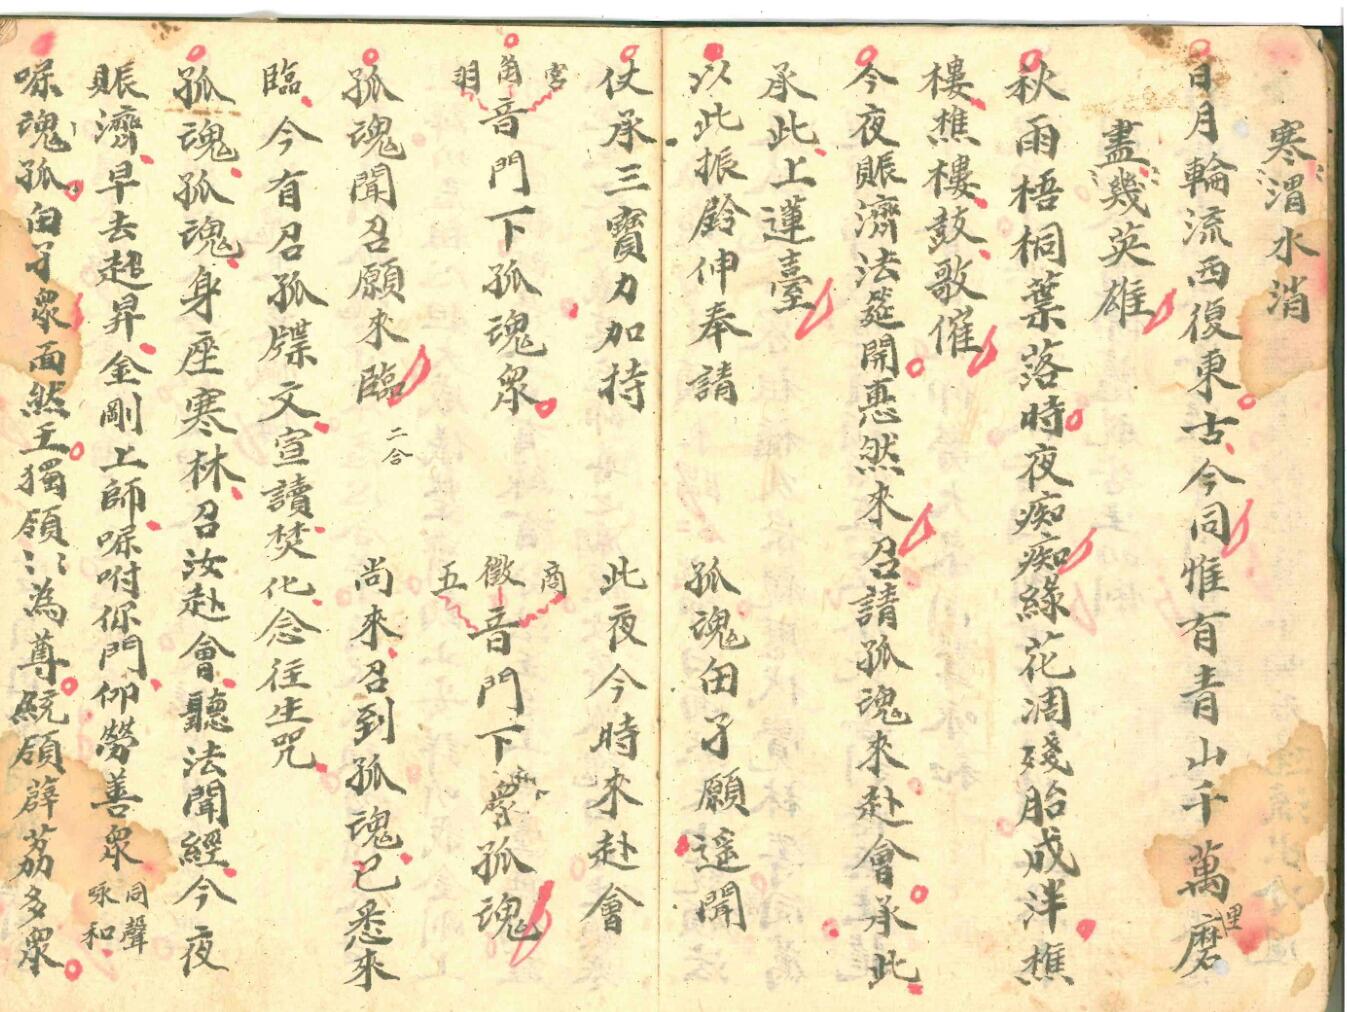 寒渭水消
日月輪流西復東古今同惟有青山千萬里磨
盡幾英雄
秋雨梧桐葉落時夜痴痴綠花凋殘胎成泮樵
樓樵樓鼓歌催
今夜賬濟法筵開悪然來召請孤魂來赴會承此
承此上蓮臺
以此振鈴伸奉請 孤魂由子願遥聞
仗承三寶力加持 此夜今時來赴會
宮角羽音門下孤魂眾 商徵五音門下孤魂
孤魂聞召願來臨 二合 尚來召到孤魂已悉來
臨今有召孤牒文宣讀焚化念往生咒
孤魂孤魂身座寒林召汝赴會聽法聞經今夜
賬濟早去超昇金剛上師㗖咐你門仰勞善眾 同聲咏和
㗖魂孤由子眾面然王獨領為尊統領薜茘多眾